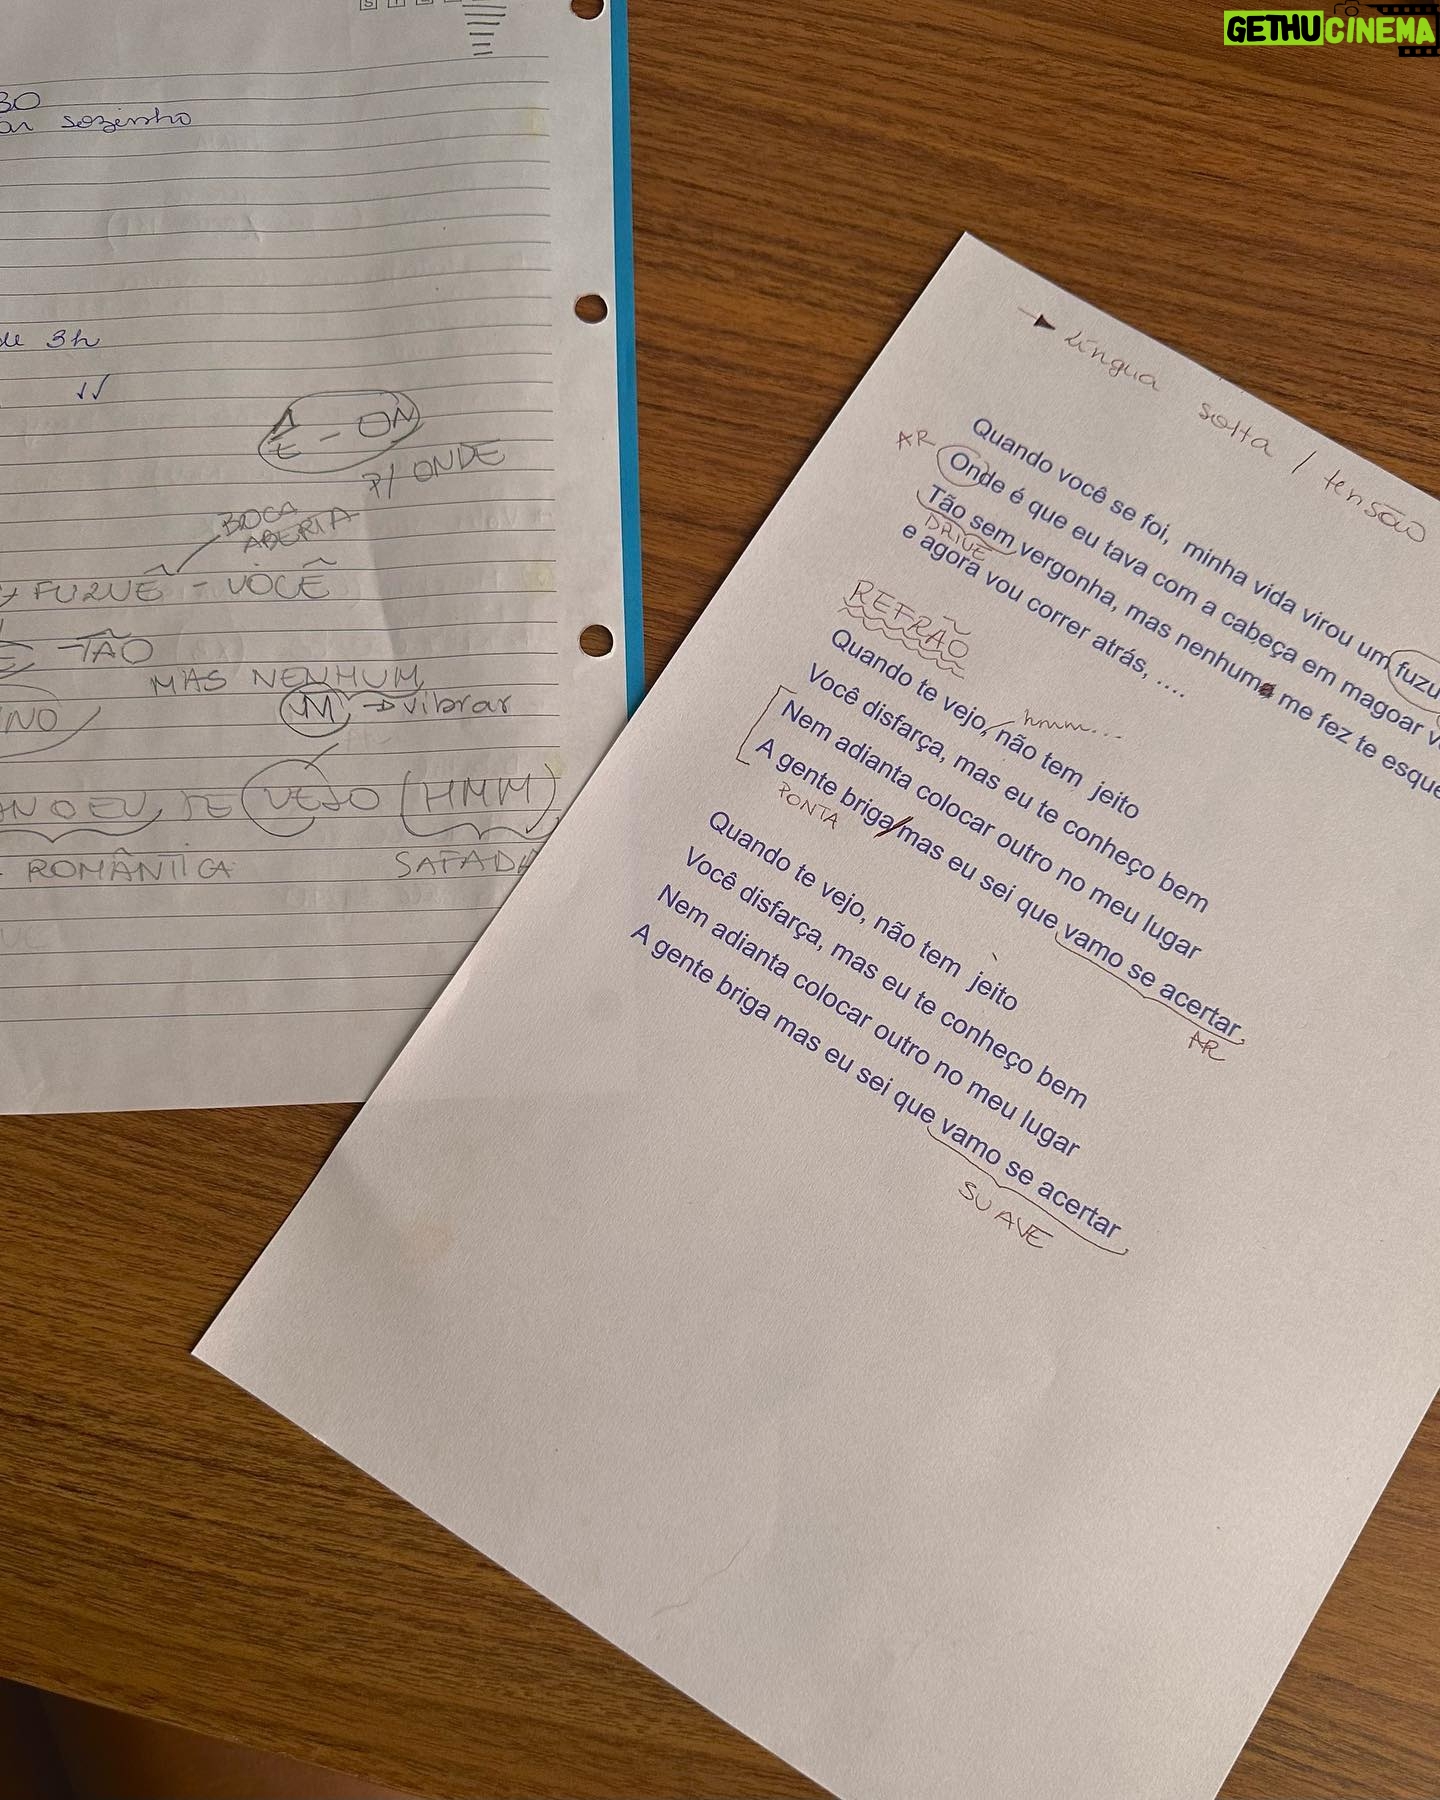 GETHUCINEMA
sozinho
3h
E - ON
P/ ONDE
BOCA
ABERTA
FUZUÊ - VOCÊ
TÃO
MAS NENHUM
M → vibrar
EU TE VEJO (HMM)
ROMÂNTICA SAFADA
língua solta / tensão
Quando você se foi, minha vida virou um fuzu
AR
Onde é que eu tava com a cabeça em magoar v
Tão sem vergonha, mas nenhum me fez te esque
DRIVE
e agora vou correr atrás, ....
REFRÃO
Quando te vejo, não tem jeito
hmm...
Você disfarça, mas eu te conheço bem
Nem adianta colocar outro no meu lugar
A gente briga/mas eu sei que vamo se acertar
PONTA
AR
Quando te vejo, não tem jeito
Você disfarça, mas eu te conheço bem
Nem adianta colocar outro no meu lugar
A gente briga mas eu sei que vamo se acertar
SUAVE